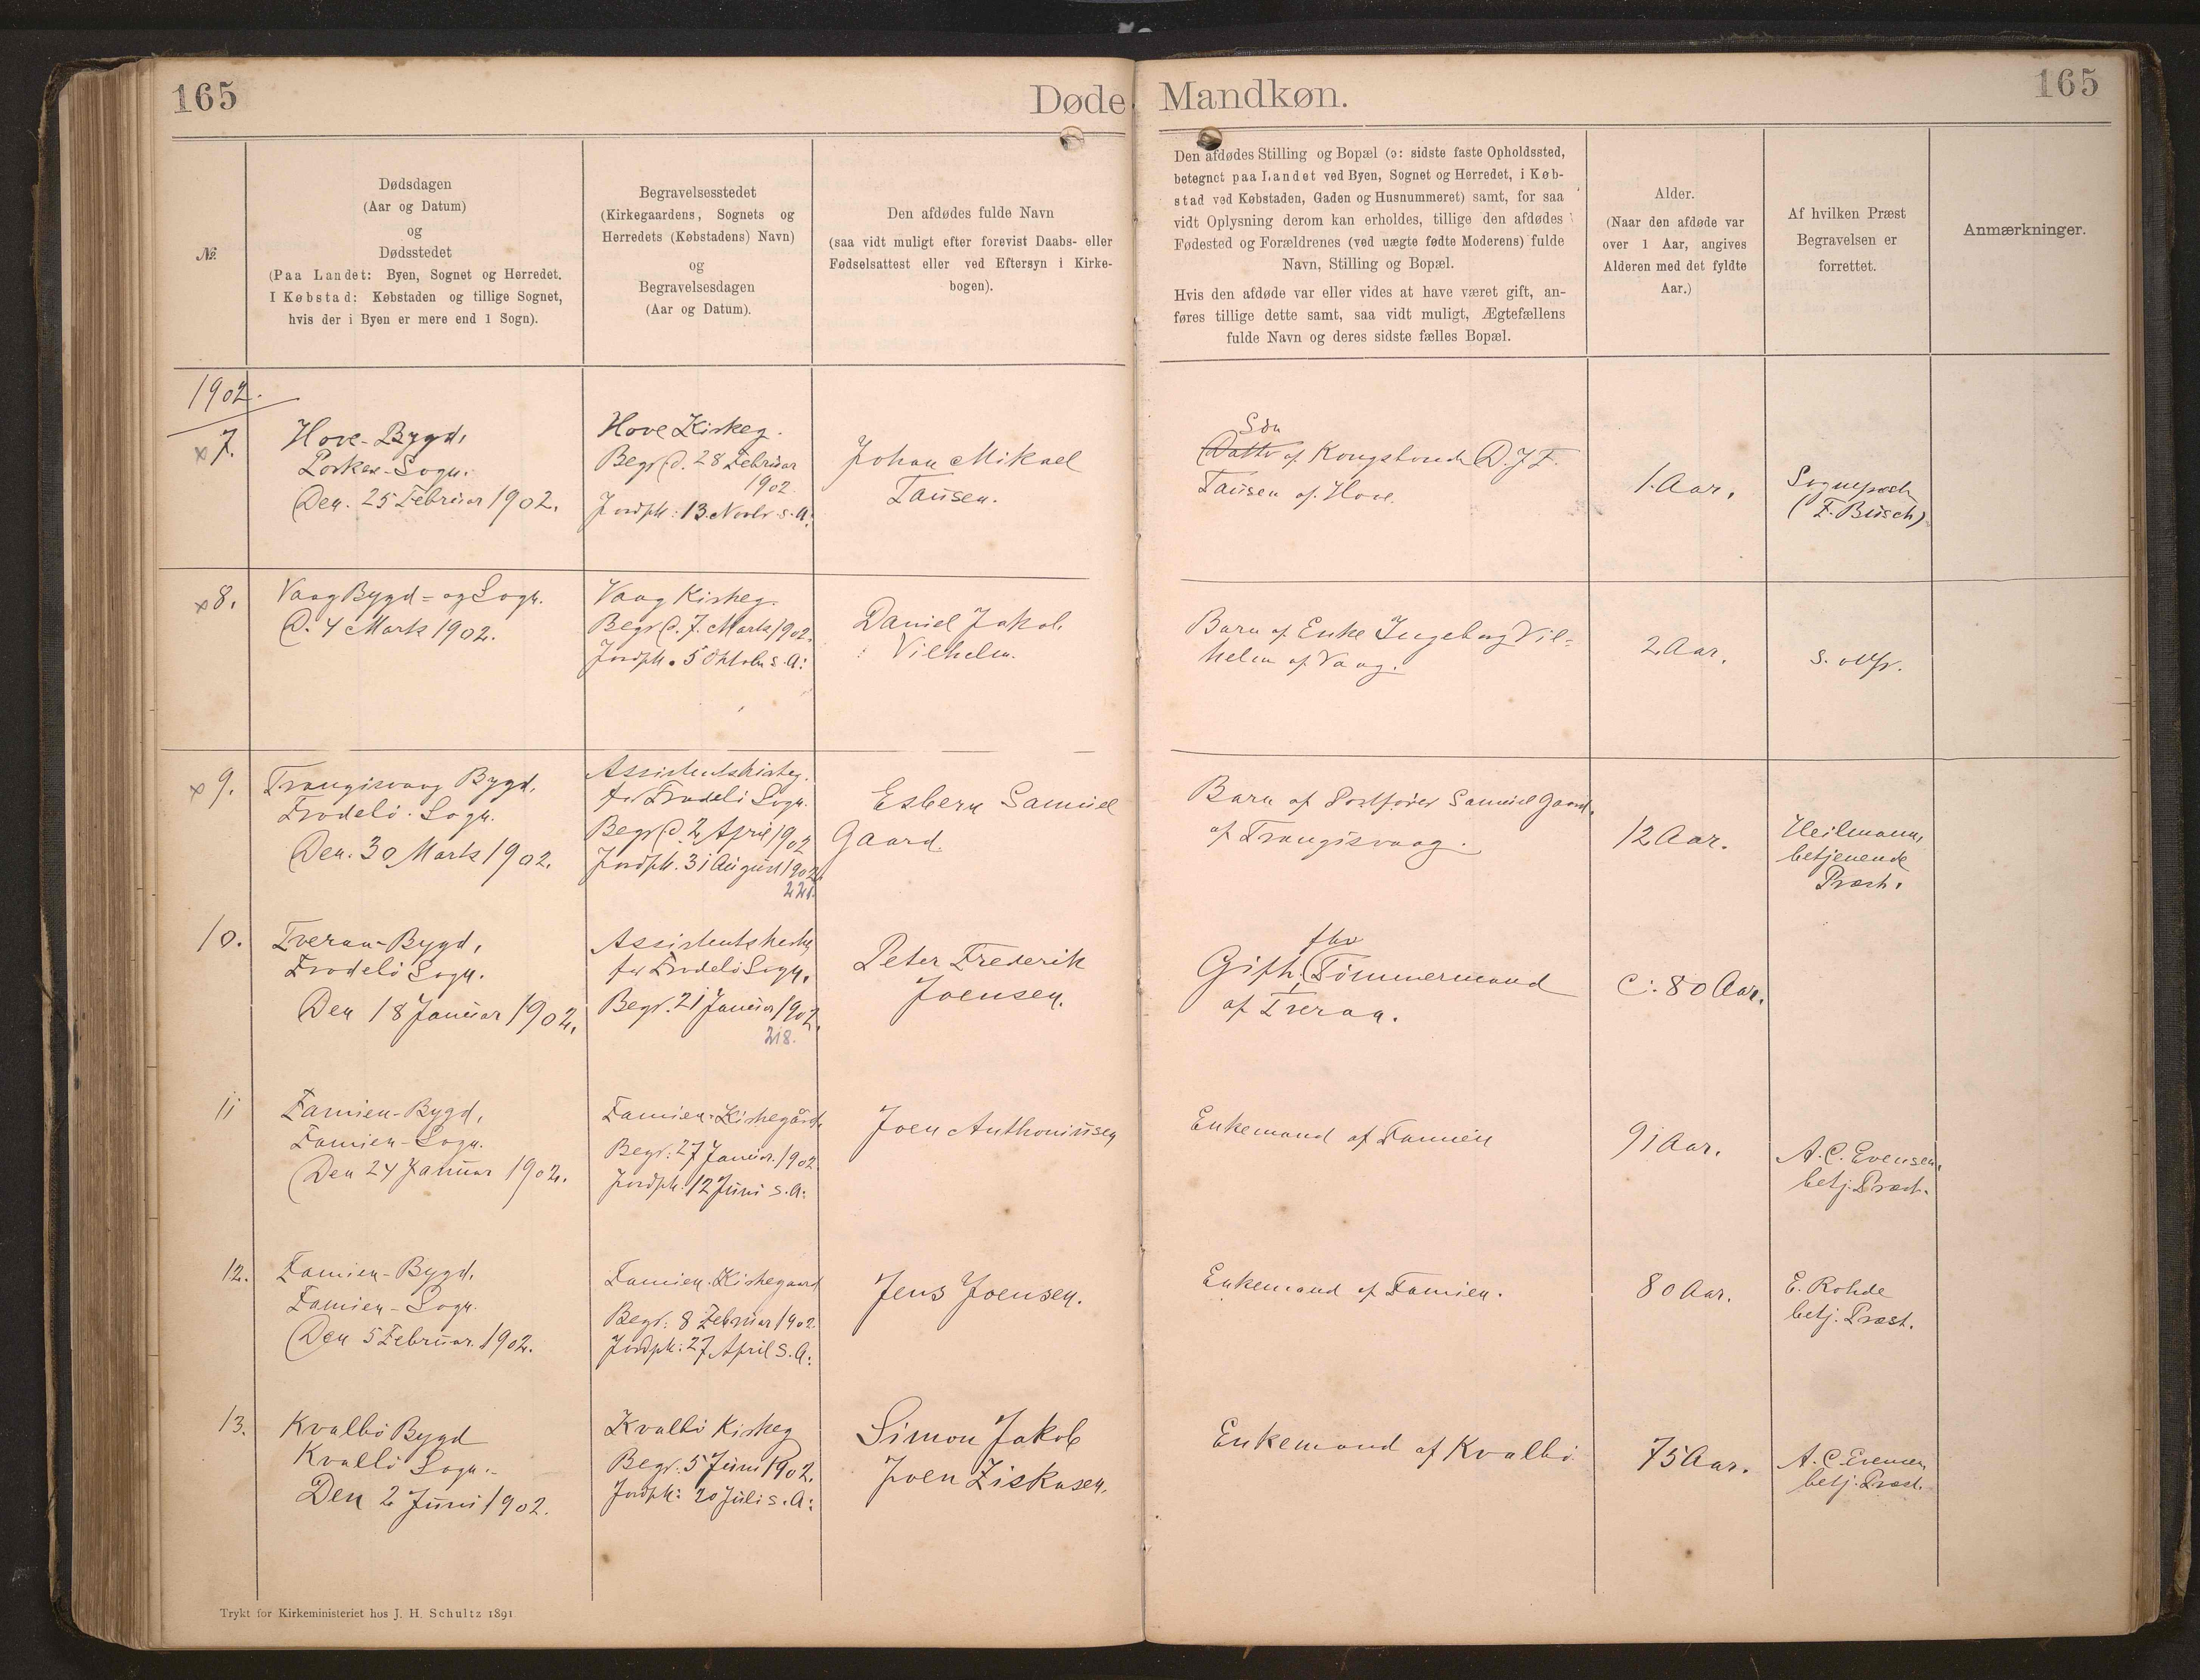 165
Døde Mandkøn.
165
№
Dødsdagen
(Aar og Datum)
og
Dødsstedet
(Paa Landet: Byen, Sognet og Herredet.
I Købstad: Købstaden og tillige Sognet,
hvis der i Byen er mere end 1 Sogn).
Begravelsesstedet
(Kirkegaardens, Sognets og
Herredets (Købstadens) Navn)
og
Begravelsesdagen
(Aar og Datum).
Den afdødes fulde Navn
(saa vidt muligt efter forevist Daabs- eller
Fødselsattest eller ved Eftersyn i Kirke-
bogen).
Den afdødes Stilling og Bopæl (ɔ: sidste faste Opholdssted,
betegnet paa Landet ved Byen, Sognet og Herredet, i Køb-
stad ved Købstaden, Gaden og Husnummeret) samt, for saa
vidt Oplysning derom kan erholdes, tillige den afdødes
Fødested og Forældrenes (ved uægte fødte Moderens) fulde
Navn, Stilling og Bopæl.
Hvis den afdøde var eller vides at have været gift, an-
føres tillige dette samt, saa vidt muligt, Ægtefællens
fulde Navn og deres sidste fælles Bopæl.
Alder.
(Naar den afdøde var
over 1 Aar, angives
Alderen med det fyldte
Aar.)
Af hvilken Præst
Begravelsen er
forrettet.
Anmærkninger.
1902.
x 7.
Hove-Bygd,
Porkere-Sogn.
Den. 25 Februar 1902.
Hove Kirkeg.
Begr. d. 28 Februar
1902
Jordpk: 13. Novbr. s. A:
Johan Mikael
Tausen.
Søn
Datter af Kongsbonde D. J. F.
Tausen af Hove.
1. Aar.
Sognepræst
(F. Busch)
x 8.
Vaag Bygd = og Sogn.
D. 4 Marts 1902.
Vaag Kirkeg.
Begr. d. 7. Marts 1902.
Jordpk. 5 Oktobr s. A:
Daniel Jakob
Vilhelm.
Barn af Enke Ingeborg Vil=
helm af Vaag.
2 Aar.
s. o. Spr.
x 9.
Trangisvaag Bygd,
Frodebø. Sogn.
Den. 30 Marts 1902.
Assistentskirkeg.
for Frodebø Sogn.
Begr. d. 2 April 1902
Jordpk. 31 August 1902.
221.
Esbern Samuel
Gaard.
Barn af Postfører Samuel Gaard.
af Trangisvaag.
12 Aar.
Heilmann,
betjenende
Præst.
10.
Tveraa-Bygd,
Frodebø Sogn.
Den 18 Januar 1902.
Assistentskirkeg
for Frodebø Sogn.
Begr. 21 Januar 1902.
218.
Peter Frederik
Joensen.
fhv
Gift. Tømmermand
af Tveraa.
c: 80 Aar.
11
Famien-Bygd,
Famien-Sogn.
Den 24 Januar 1902.
Famien-Kirkegård
Begr: 27 Januar. 1902
Jordpk: 12 Juni s. A:
Joen Anthoniusen
Enkemand af Famien
91 Aar.
A. C. Evensen.
betj. Præst.
12.
Famien-Bygd.
Famien-Sogn.
Den 5 Februar. 1902.
Famien-Kirkegaard
Begr: 8 Februar 1902.
Jordpk: 27 April s. A:
Jens Joensen.
Enkemand af Famien.
80 Aar.
E. Rohde
betj. Præst.
13.
Kvalbø Bygd
Kvalbø Sogn.
Den 2 Juni 1902.
Kvalbø Kirkeg
Begr. 5 Juni 1902.
Jordpk: 20 Juli s. A:
Simon Jakob
Joen Ziskasen.
Enkemand af Kvalbø.
75 Aar.
A. C. Evensen
betj. Præst.
Trykt for Kirkeministeriet hos J. H. Schultz 1891.